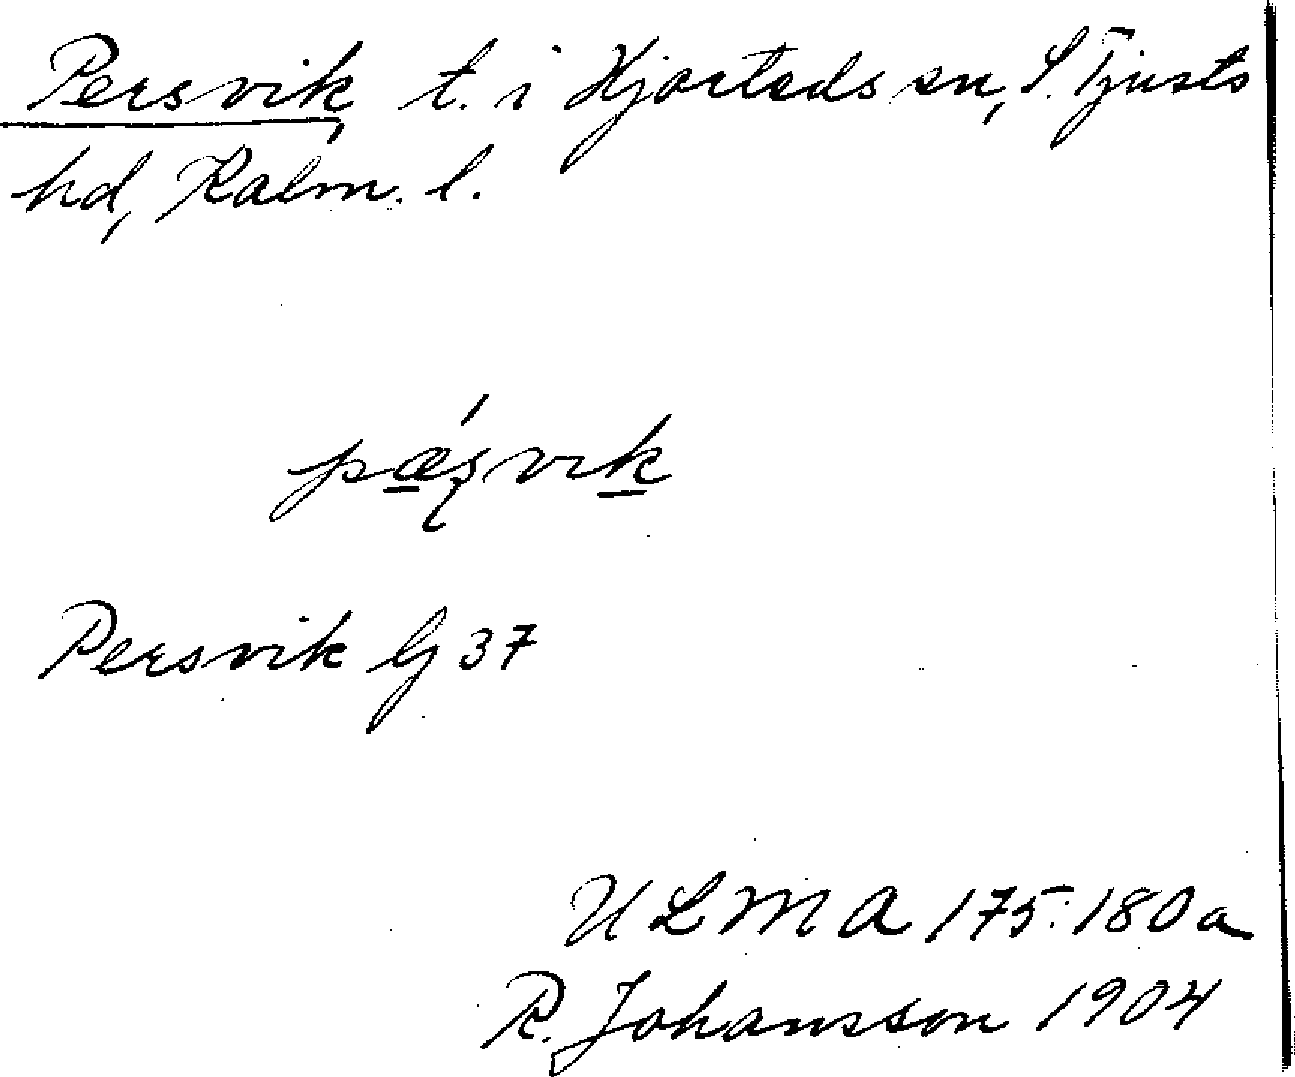 Persvik, t. i Hjorteds sn, S. Tjusts
hd, Kalm. l.
pæ´ʂvik
Persvik Gj 37
ULMA 175:180a
R. Johansson 1904